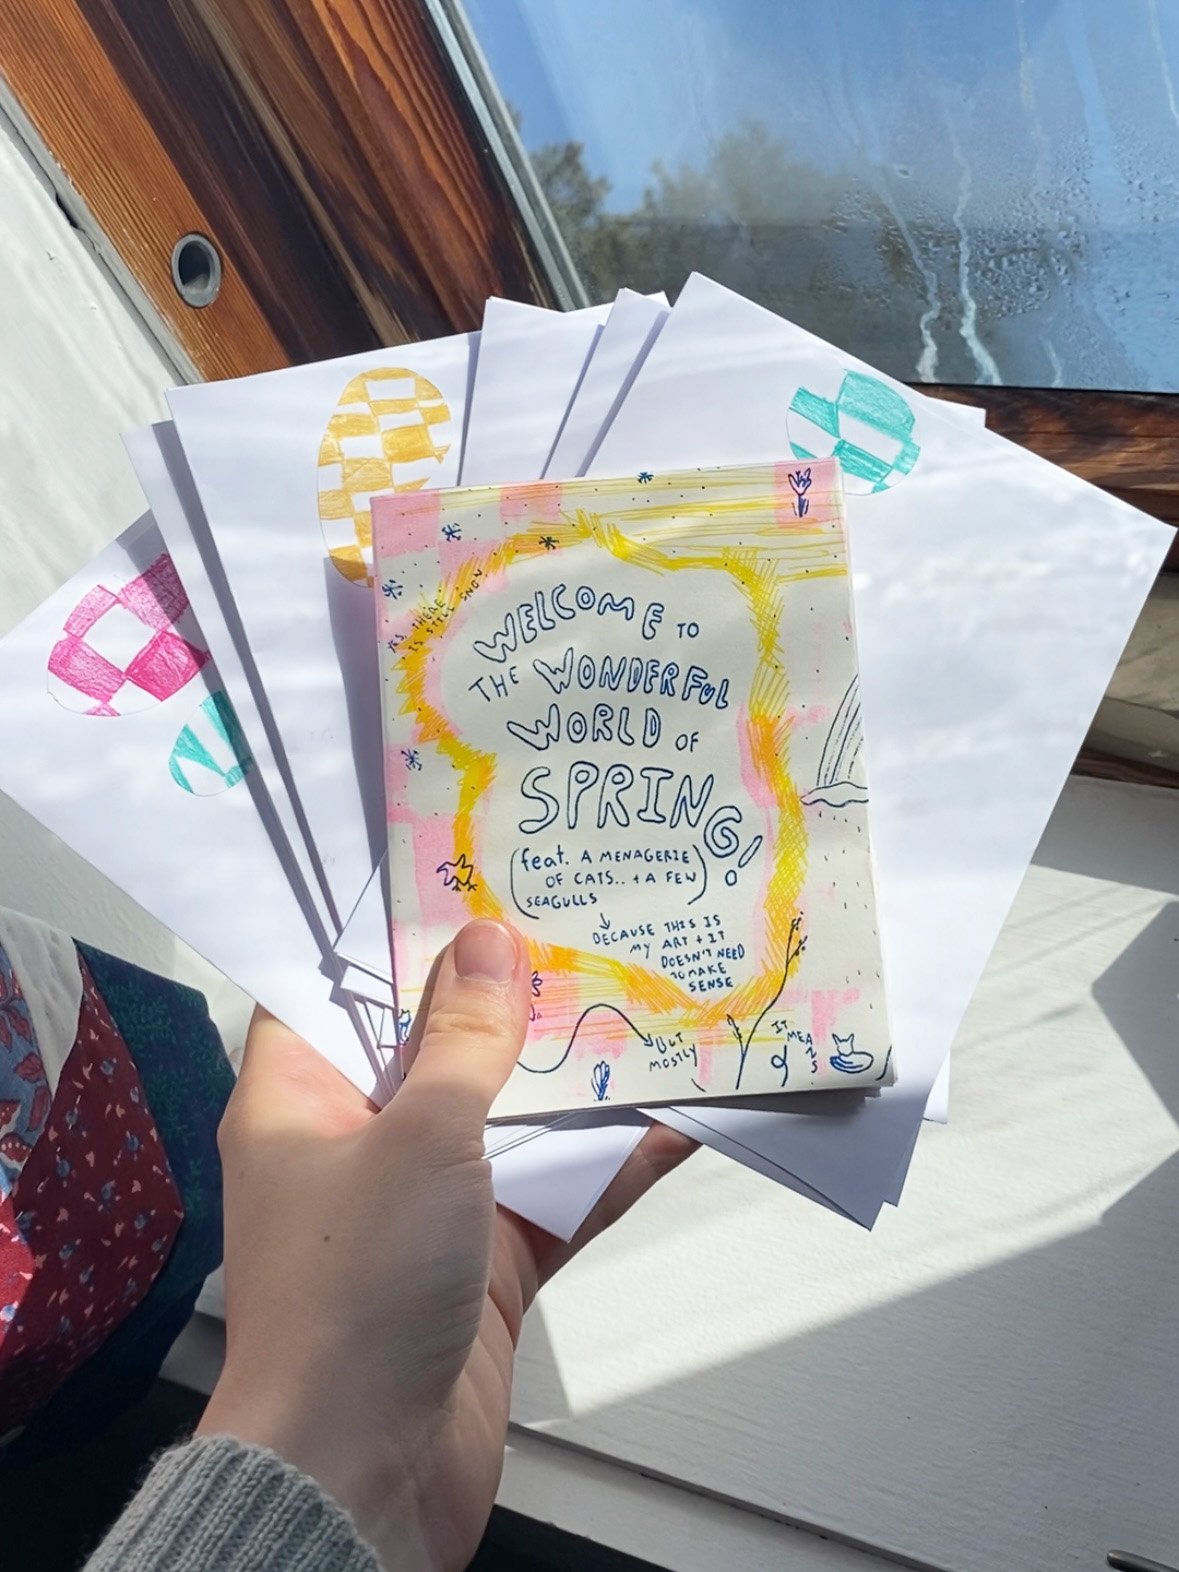 YES, THERE
IS STILL SNOW
WELCOME TO
THE WONDERFUL
WORLD OF
SPRING!
(feat. A MENAGERIE
OF CATS.. + A FEW
SEAGULLS)
BECAUSE THIS IS
MY ART + IT
DOESN'T NEED
TO MAKE
SENSE
BUT
MOSTLY
IT
MEANS